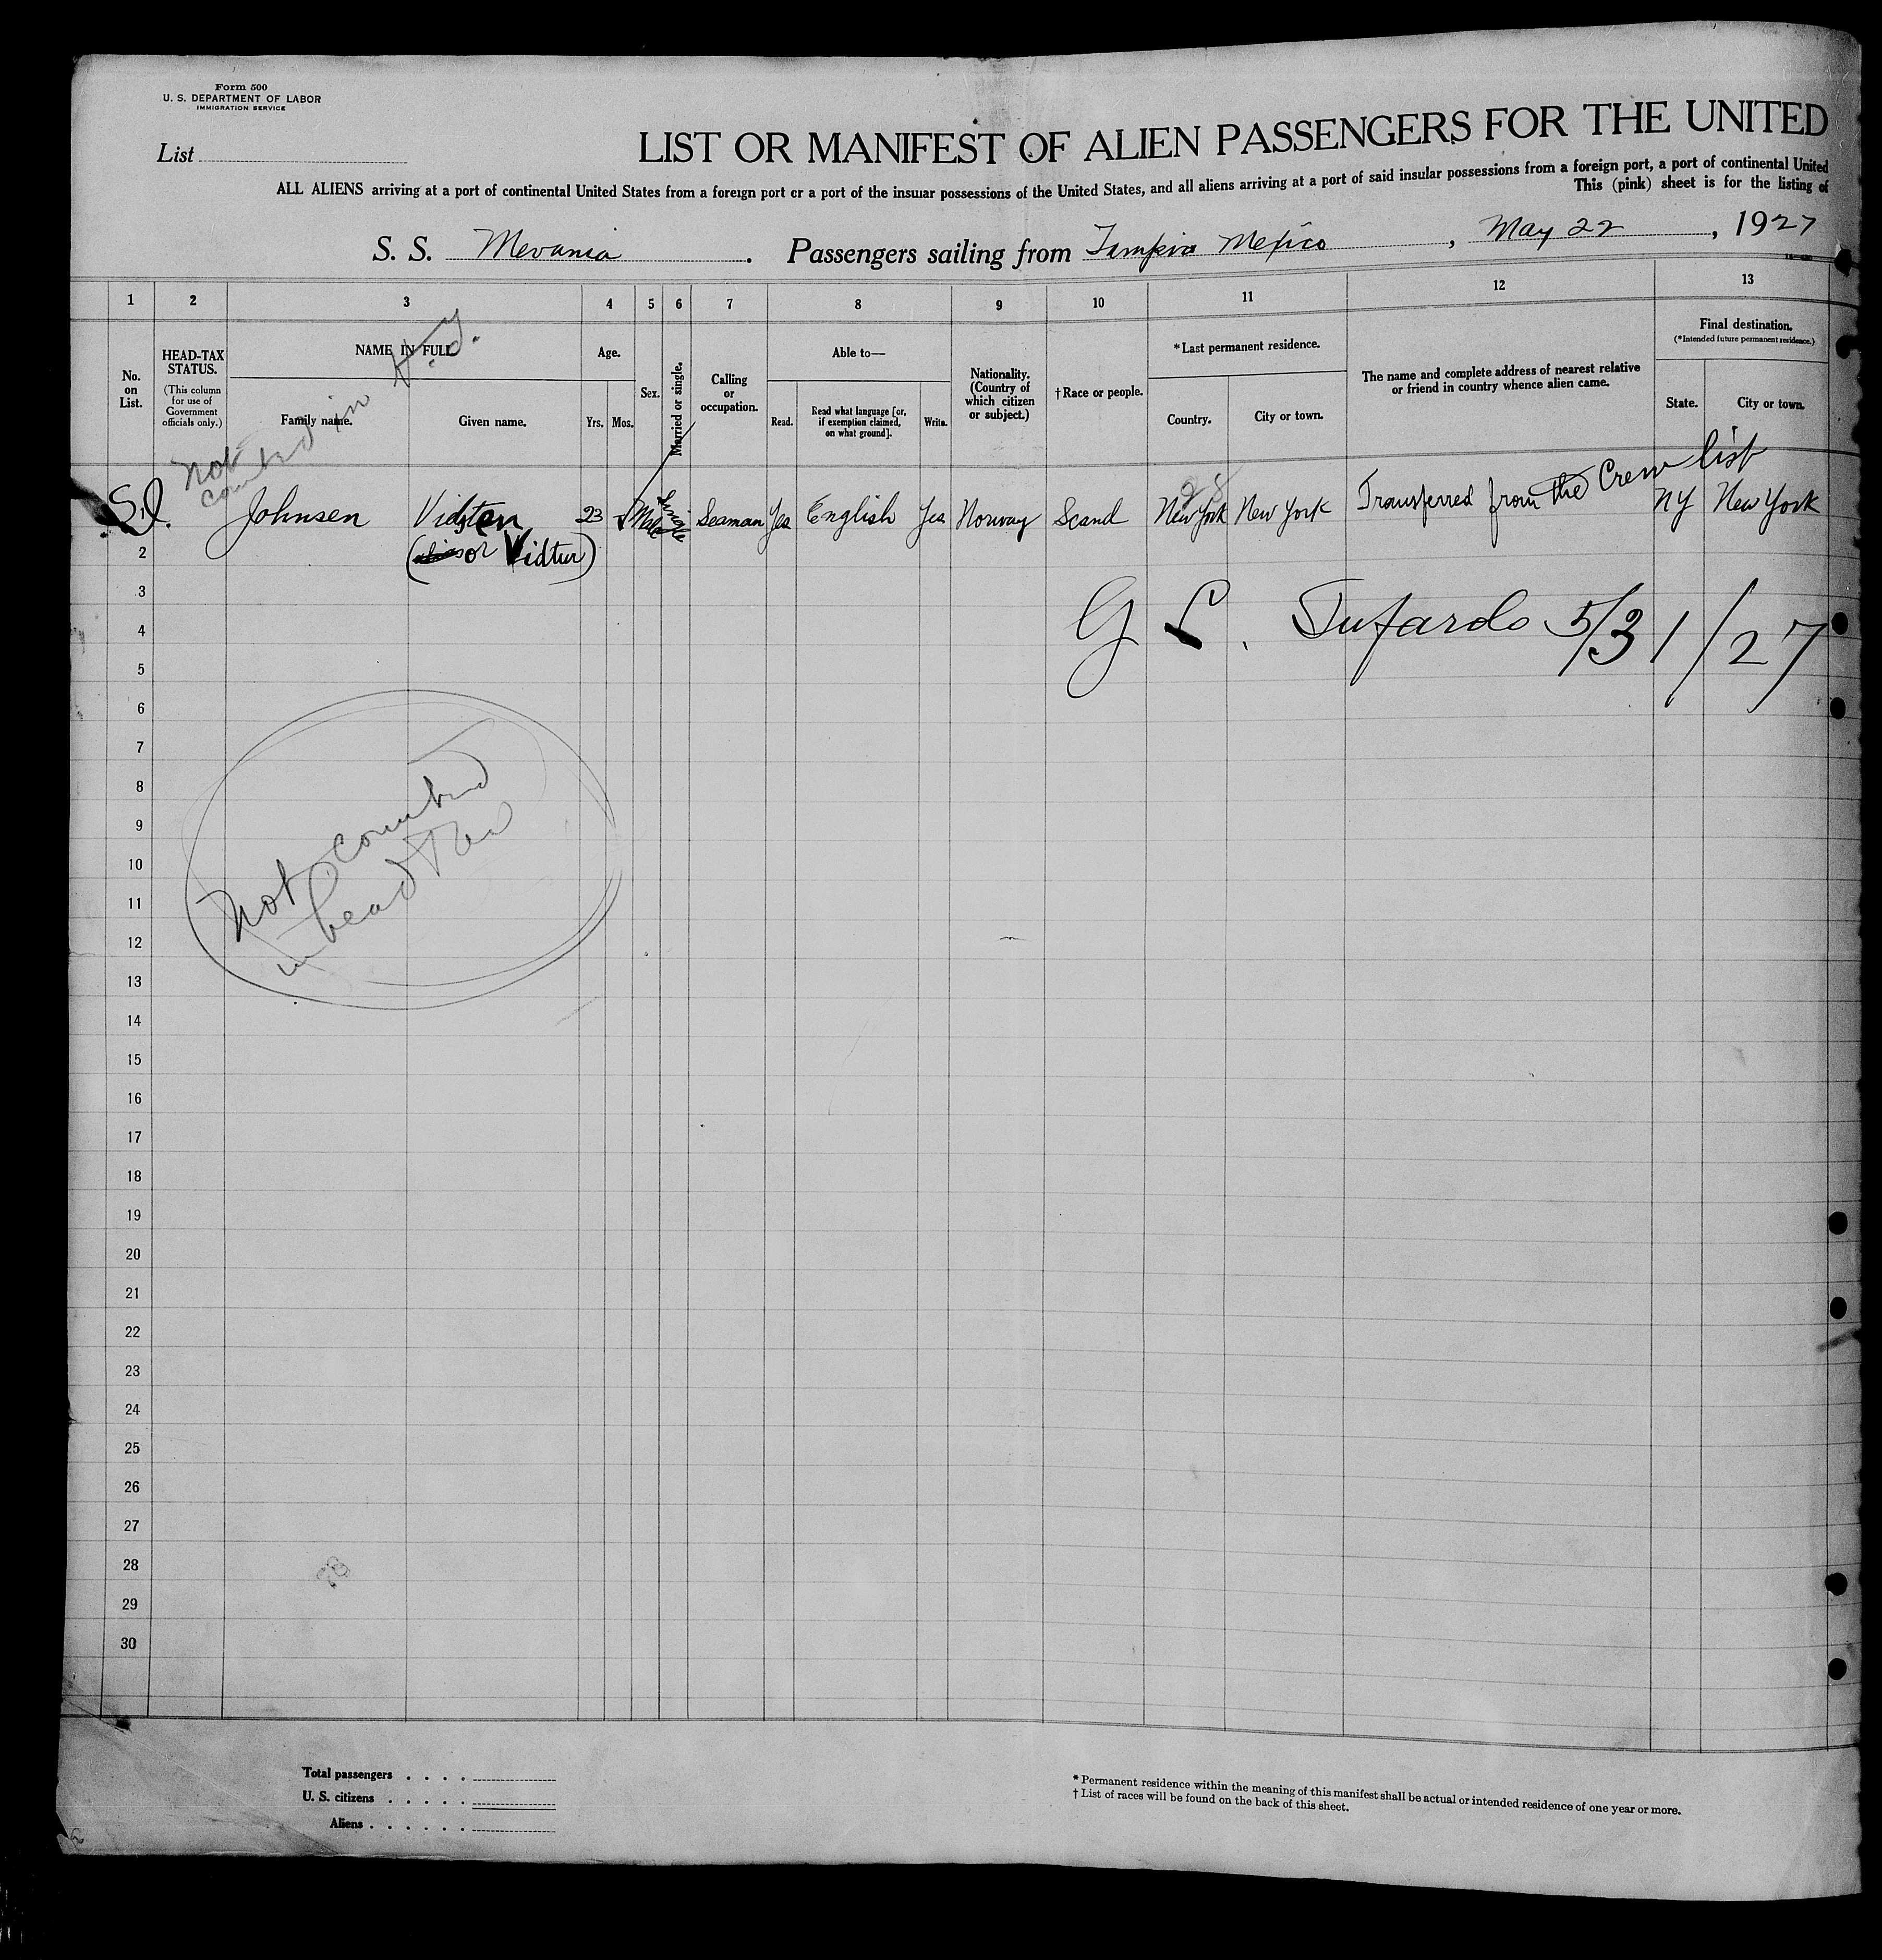 Form 500
U. S. DEPARTMENT OF LABOR
IMMIGRATION SERVICE
List
LIST OR MANIFEST OF ALIEN PASSENGERS FOR THE UNITED
ALL ALIENS arriving at a port of continental United States from a foreign port or a port of the insular possessions of the United States, and all aliens arriving at a port of said insular possessions from a foreign port, a port of continental United
This (pink) sheet is for the listing of
S. S. Mevania. Passengers sailing from Tampico Mexico, May 22, 1927
1 2 3 4 5 6 7 8 9 10 11 12 13
No. on List.
HEAD-TAX STATUS.
(This column for use of Government officials only.)
NAME IN FULL
Family name.
Given name.
Age.
Yrs.
Mos.
Sex.
Married or single.
Calling or occupation.
Able to—
Read.
Read what language [or, if exemption claimed, on what ground].
Write.
Nationality. (Country of which citizen or subject.)
†Race or people.
*Last permanent residence.
Country.
City or town.
The name and complete address of nearest relative or friend in country whence alien came.
Final destination.
(*Intended future permanent residence.)
State.
City or town.
Not counted in
1 Johnsen Vidsten 23 Male Single Seaman Yes English Yes Norway Scand New York New York Transferred from the Crew list NY New York
2 (or Vidtur)
3
4 5/31/27
5
6
7
8
9
10
11
12
13
Not counted
in head tax
14
15
16
17
18
19
20
21
22
23
24
25
26
27
28
29
30
Total passengers
U. S. citizens
Aliens
* Permanent residence within the meaning of this manifest shall be actual or intended residence of one year or more.
† List of races will be found on the back of this sheet.